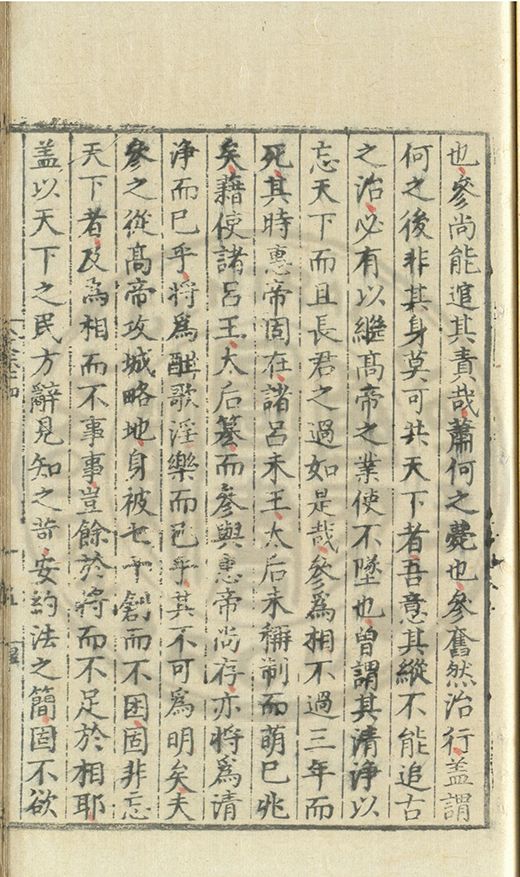 也參尚能逭其責哉蕭何之薨也參舊然治行盖謂
何之後非其身莫可共天下者吾意其縱不能追古
之治必有以繼高帝之業使不墜也曾謂其清淨以
忘天下而且長君之過如是哉參爲相不過三年而
死其時惠帝固在諸呂未王太后未稱制而萌已兆
矣藉使諸呂王太后簒而參與惠帝尚存亦將爲清
淨而已乎將爲酣歌淫樂而已乎其不可爲明矣夫
參之從高帝攻城略地身被七十創而不困固非忘
天下者及爲相而不事事豈餘於將而不足於相耶
盖以天下之民方辭見知之苛安約法之簡固不欲